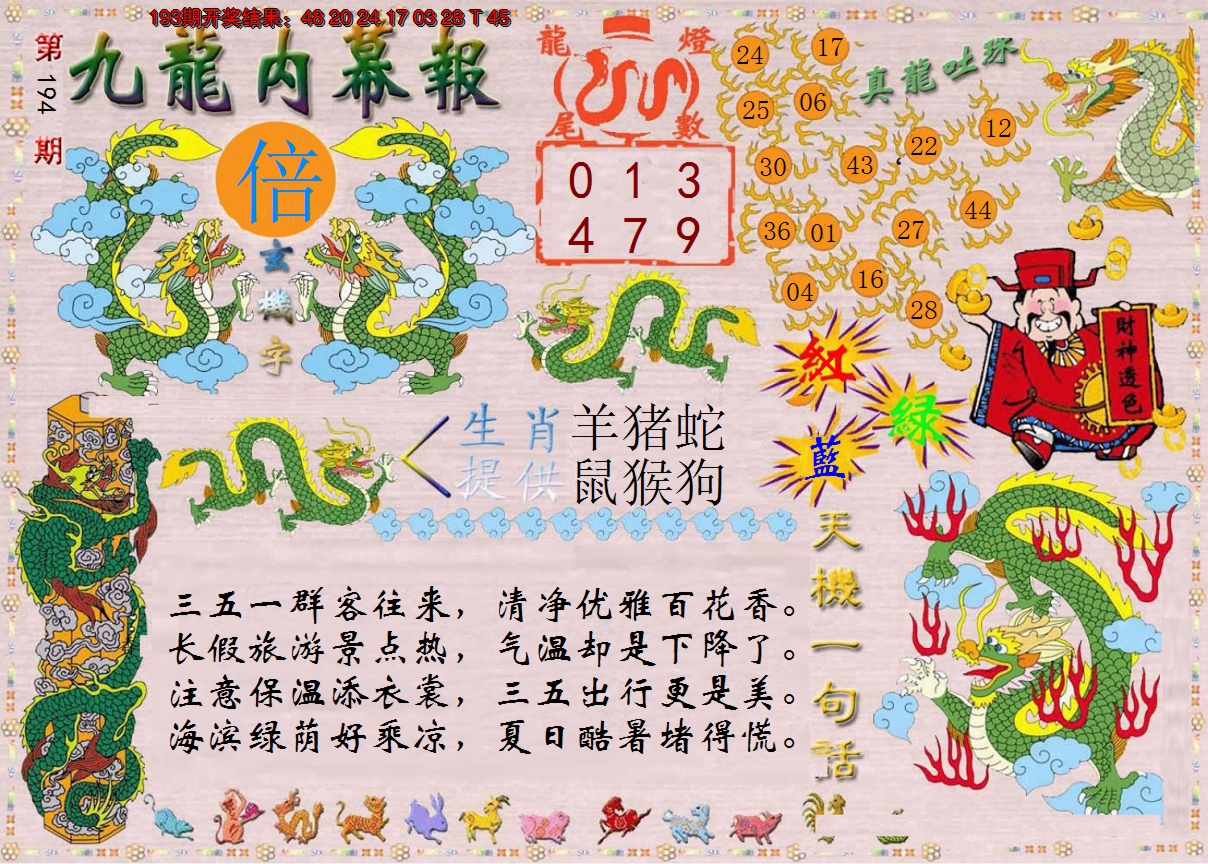 193期开奖结果：48 20 24 17 03 28 T 45
第194期
九龍内幕報
倍
玄機字
龍燈尾數
0 1 3
4 7 9
真龍吐珠
24 17
25 06
22 12
30 43
44
36 01 27
04 16
28
紅
綠
藍
財神透色
生肖提供
羊猪蛇
鼠猴狗
三五一群客往来，清净优雅百花香。
长假旅游景点热，气温却是下降了。
注意保温添衣裳，三五出行更是美。
海滨绿荫好乘凉，夏日酷暑堵得慌。
天機一句話